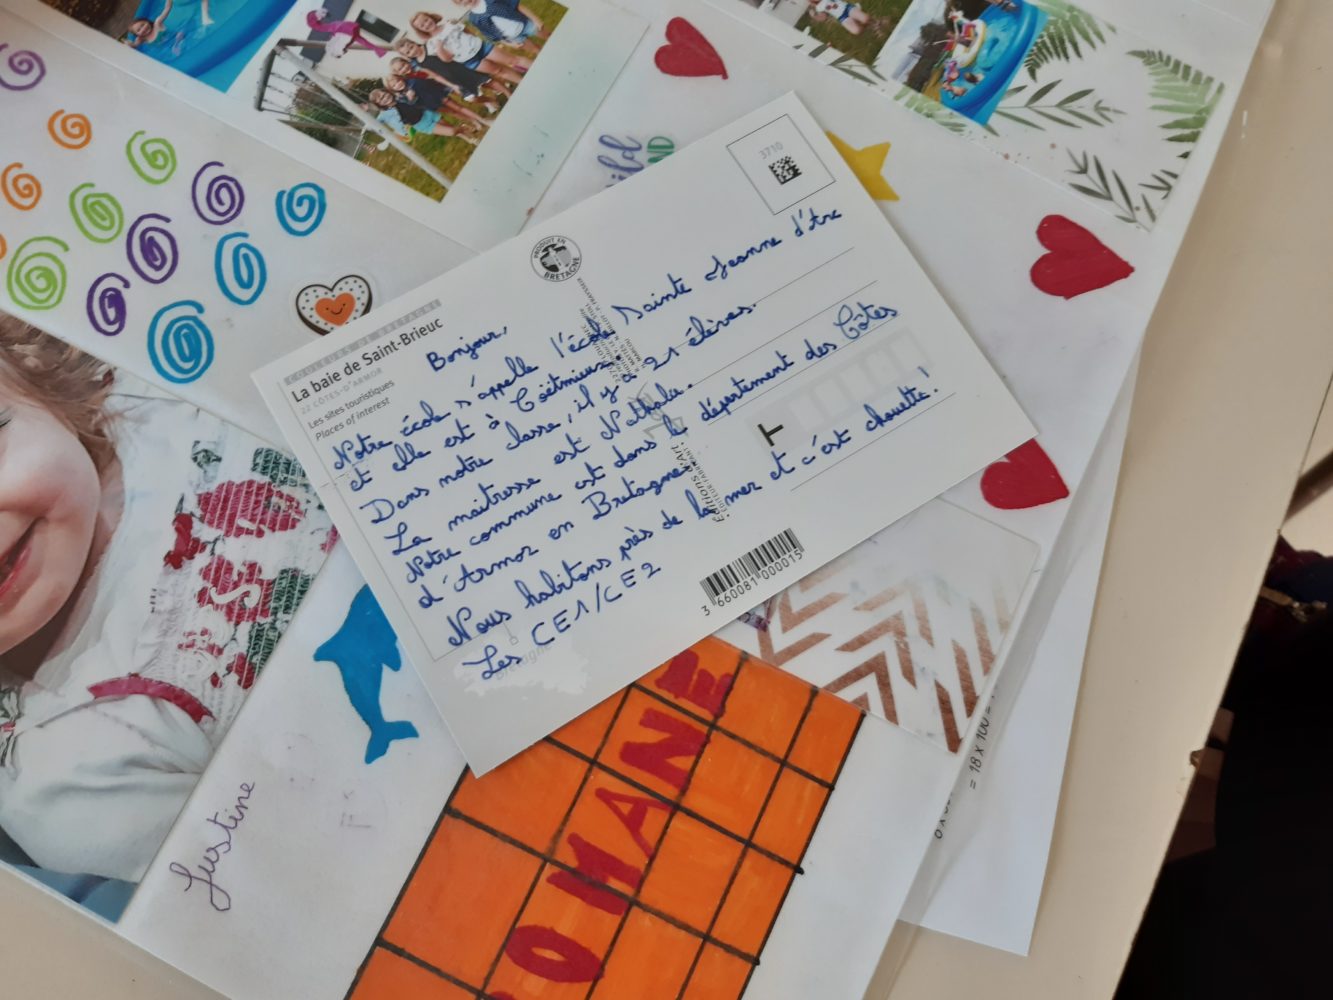 COULEURS DE BRETAGNE
La baie de Saint-Brieuc
22 CÔTES-D'ARMOR
Les sites touristiques
Places of interest
PRODUIT EN BRETAGNE
3710
Bonjour,
Notre école s'appelle l'école Sainte Jeanne d'Arc
et elle est à Coëtmieux.
Dans notre classe, il y a 21 élèves.
La maitresse est Nathalie.
Notre commune est dans le département des Côtes
d'Armor en Bretagne.
Nous habitons près de la mer et c'est chouette!
Les CE1/CE2
3 660081 000015
Justine
OMANE
= 18 x 100 =